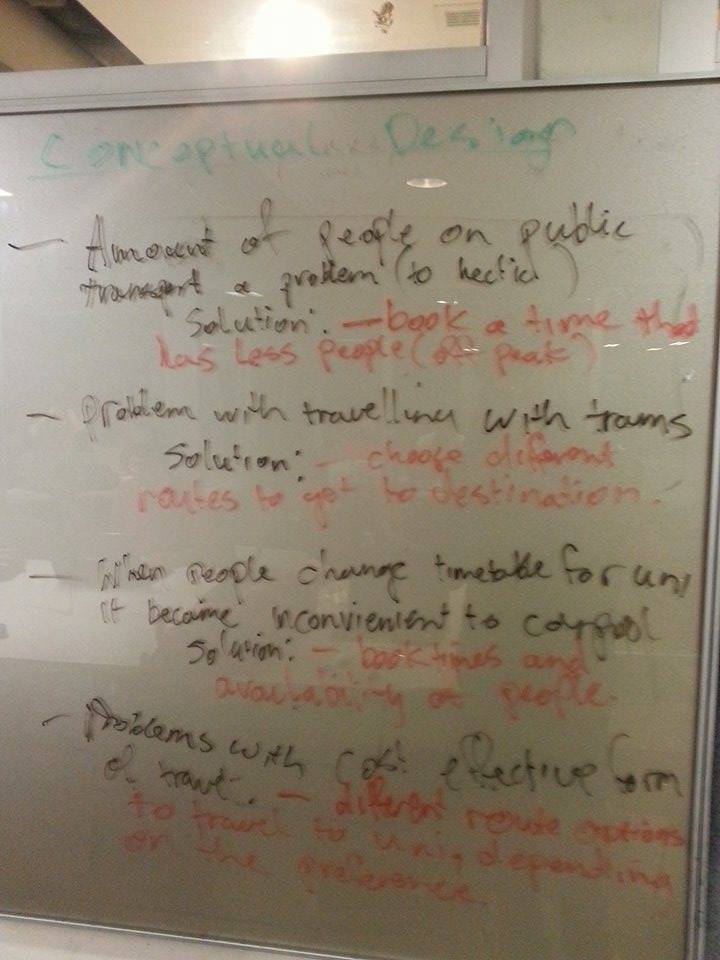 Conceptual Design
— Amount of people on public
transport a problem (to hectic)
Solution: — book a time that
has less people (off peak)
— Problem with travelling with trams
Solution: — choose different
routes to get to destination.
— When people change timetable for uni
it became inconvienient to carpool
Solution: — book times and
availability of people.
— Problems with cost effective form
of travel. — different route options
to travel to uni, depending
on the preference